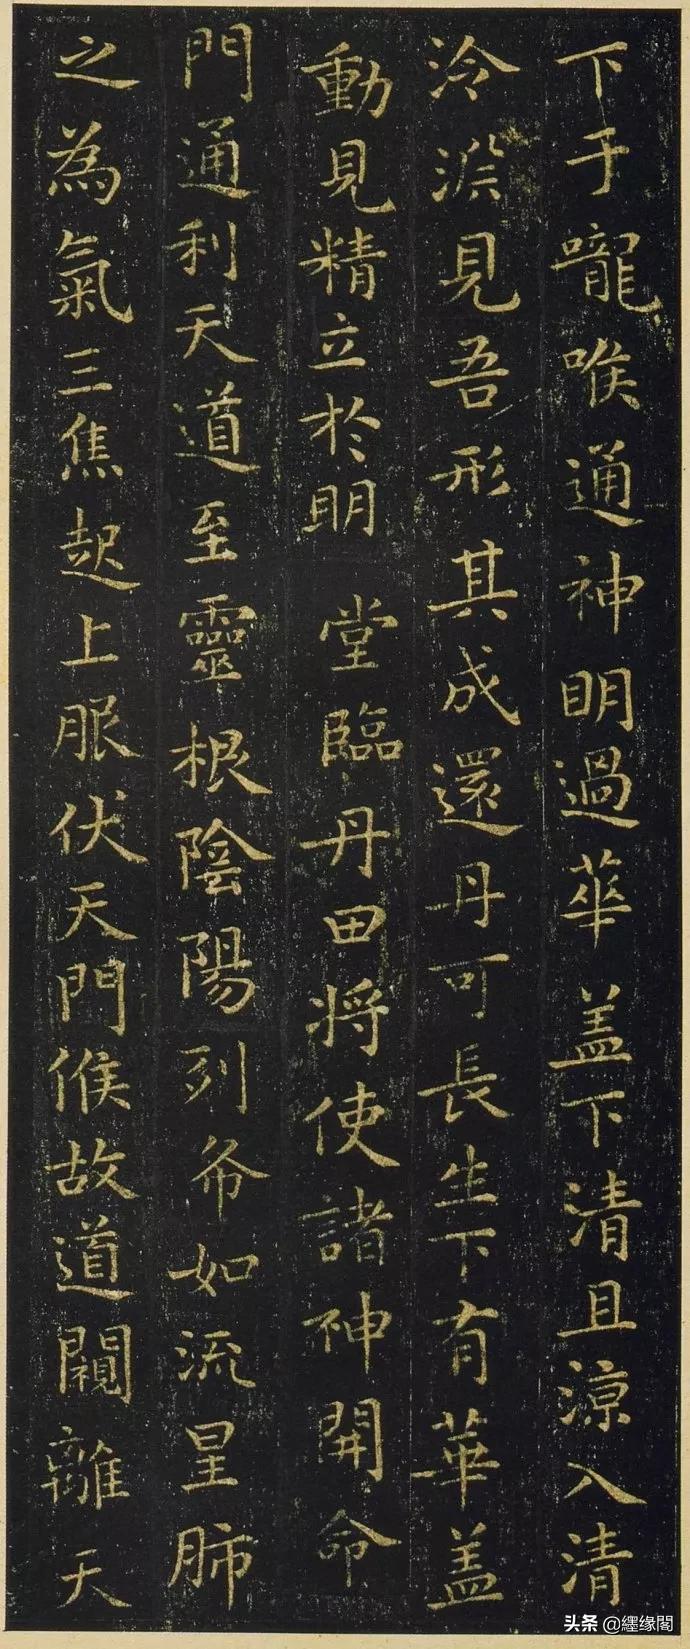 下于嚨喉通神明過華盖下清且涼入清
泠淵見吾形其成還丹可長生下有華盖
動見精立於明堂臨丹田将使諸神開命
門通利天道至靈根陰陽列布如流星肺
之為氣三焦起上服伏天門候故道闚離天
头条 @纆缘閣